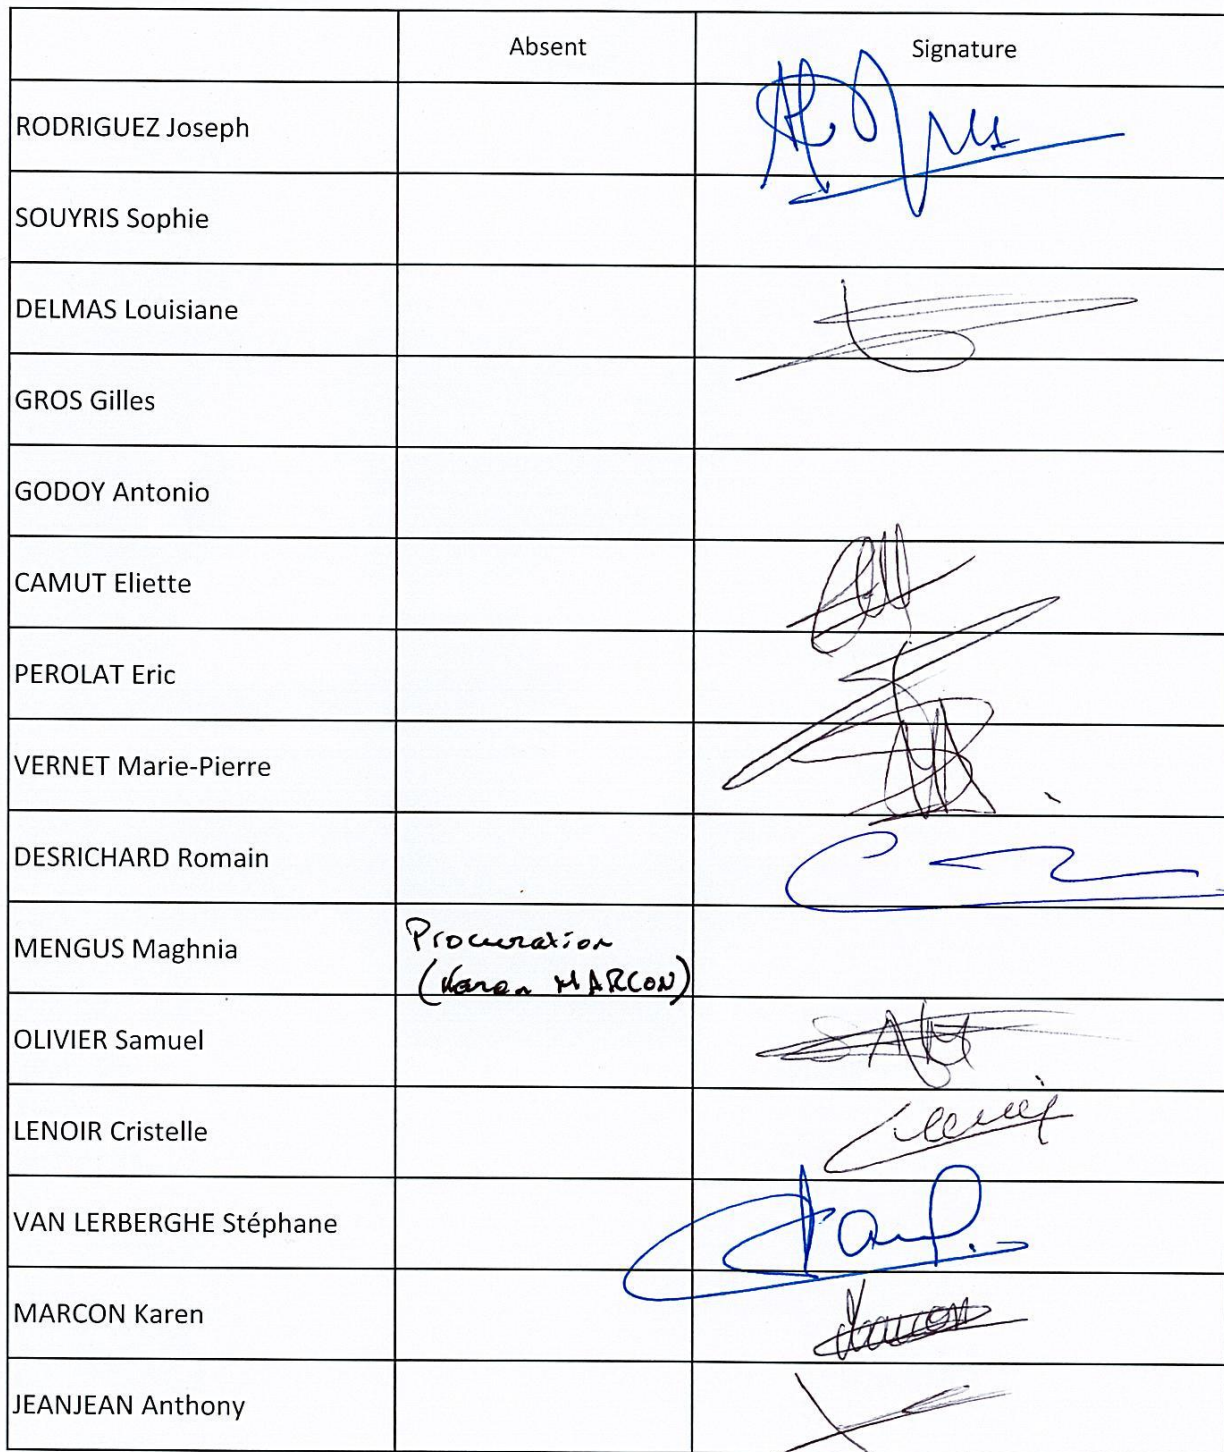 Absent Signature
RODRIGUEZ Joseph
SOUYRIS Sophie
DELMAS Louisiane
GROS Gilles
GODOY Antonio
CAMUT Eliette
PEROLAT Eric
VERNET Marie-Pierre
DESRICHARD Romain
MENGUS Maghnia Procuration
(Karen MARCON)
OLIVIER Samuel
LENOIR Cristelle
VAN LERBERGHE Stéphane
MARCON Karen
JEANJEAN Anthony